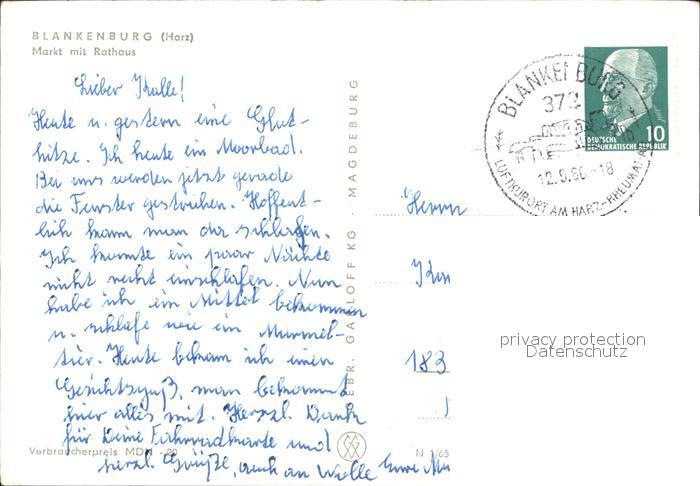 BLANKENBURG (Harz)
Markt mit Rathaus
Lieber Kalle!
Heute u. gestern eine Glut-
hitze. Ich heute ein Moorbad.
Bei uns werden jetzt gerade
die Fenster gestrichen. Hoffent-
lich kann man da schlafen.
Ich konnte ein paar Nächte
nicht recht einschlafen. Nun
habe ich ein Mittel bekommen
u. schlafe wie ein Murmel-
tier. Heute bekam ich einen
Gesichtsguß, man bekommt
hier alles mit. Herzl. Dank
für Deine Fahrradkarte und
herzl. Grüße, auch an Wolle Eure
Verbraucherpreis MDN -,20
N 1/65
GEBR. GARLOFF KG · MAGDEBURG
BLANKENBURG
372
12.9.66-18
LUFTKURORT AM HARZ-RHEUMA
10
DEUTSCHE
DEMOKRATISCHE REPUBLIK
Herrn
183
privacy protection
Datenschutz